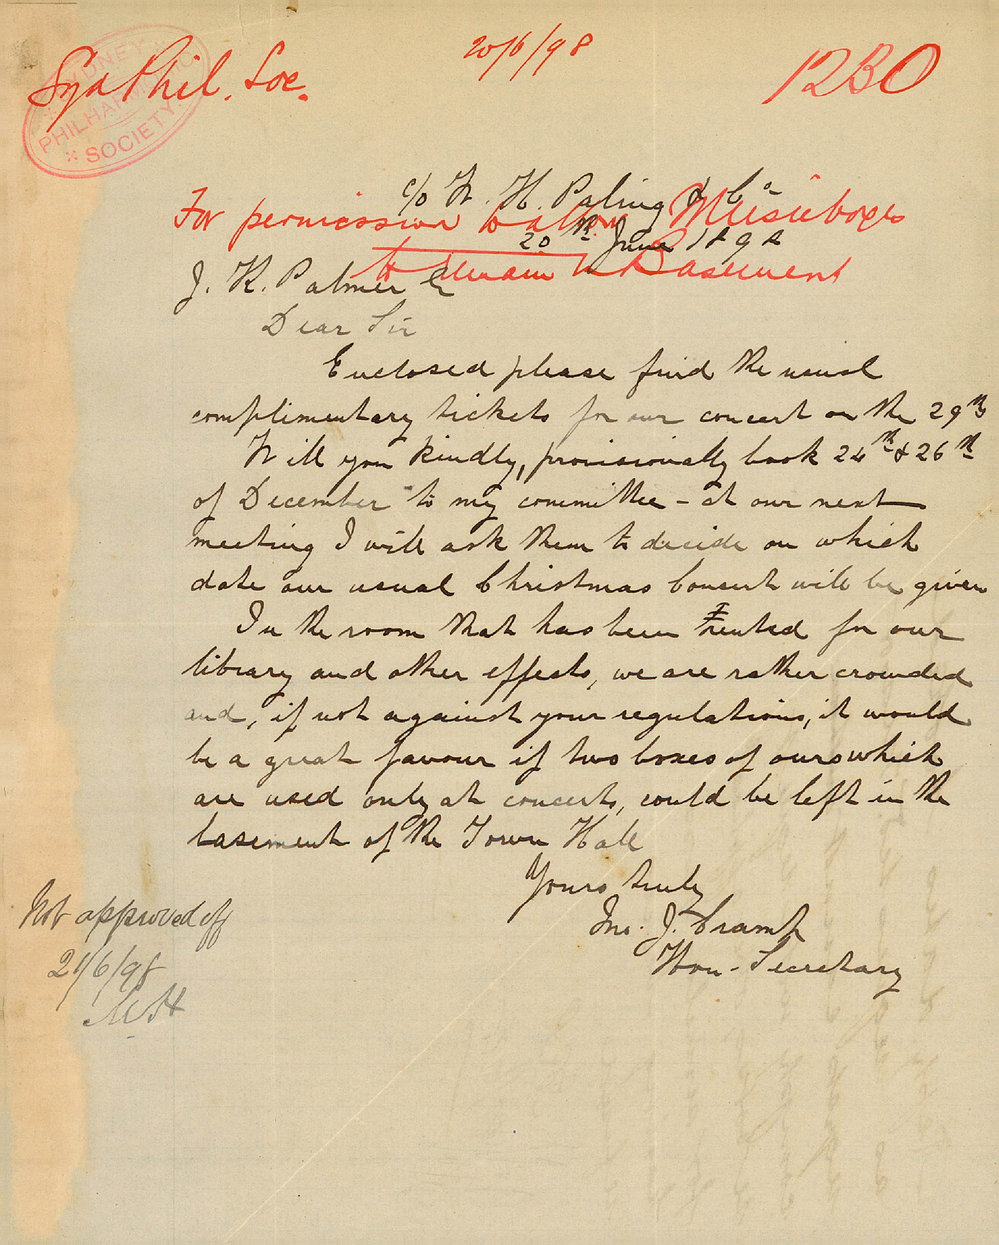 20/6/98
Syd Phil. Soc.
1230
SYDNEY
PHILHARMONIC
SOCIETY
c/o W. H. Paling & Co
For permission to allow Musicboxes
20th June 1898
to remain in Basement
J. K. Palmer
Dear Sir
Enclosed please find the usual
complimentary tickets for our concert on the 29th
Will you kindly, provisionally book 24th & 26th
of December to my committee - at our next
meeting I will ask them to decide on which
date our usual Christmas Concert will be given
In the room that has been rented for our
library and other effects, we are rather crowded
and, if not against your regulations, it would
be a great favour if two boxes of ours which
are used only at concerts, could be left in the
basement of the Town Hall
Yours truly
Jno. J. Cramp
Hon. Secretary
Not approved of
21/6/98